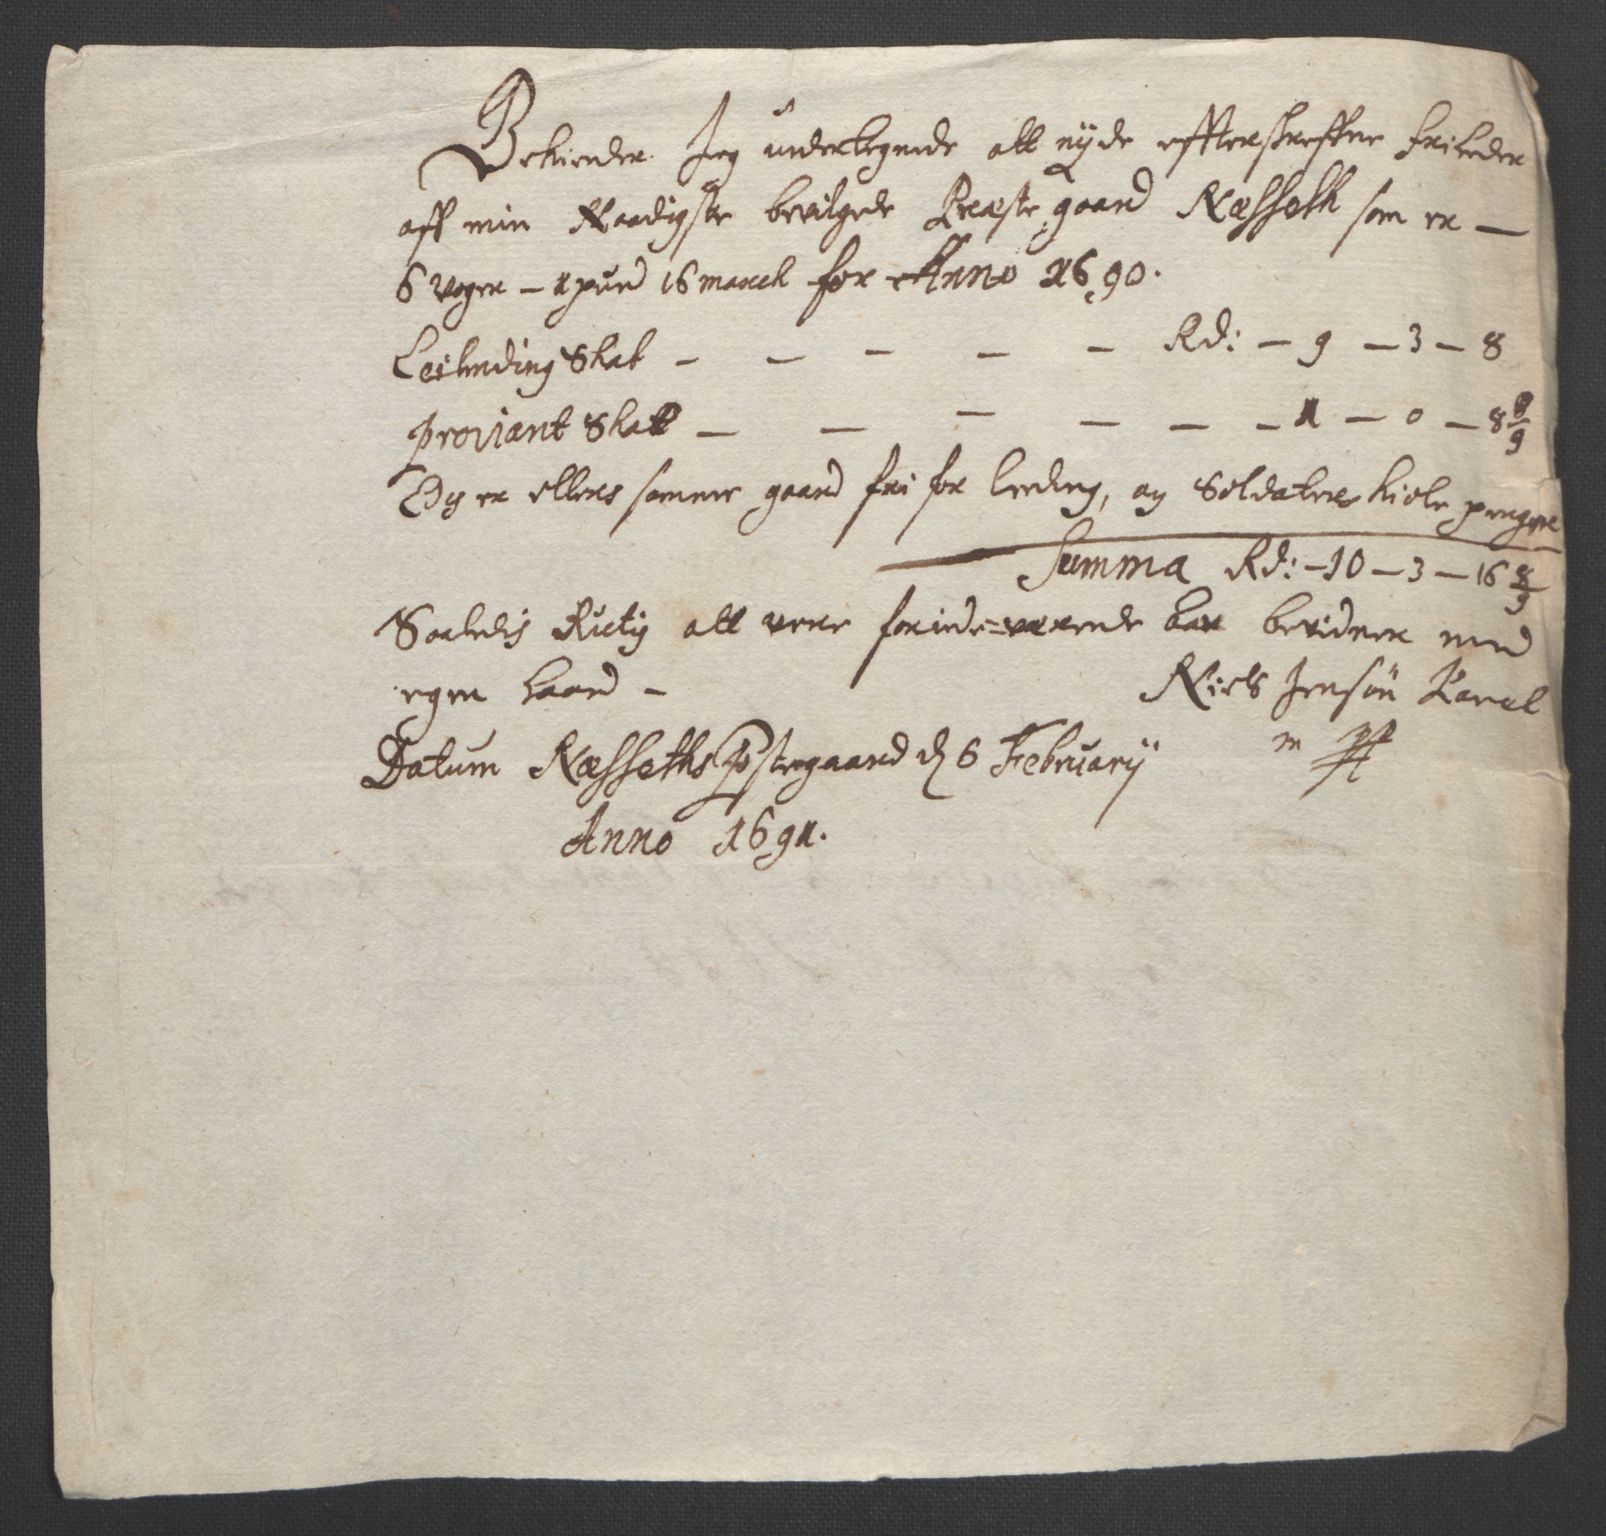 Bekiender Jeg undertegnede att nyde efftershreffne friheder
aff min Naadigste bevilgede Præste gaard Næsseth som er —
6 voger — 1 pund 16 march for Anno 1690.
Leilending Skat — — — — — Rd: — 9 — 3 — 8
proviant Skatt — — — — — — 1 — 0 — 8 8/9
Og er ellers samme gaard fri for leeding, og Soldaters kiole pengene
Summa Rd: — 10 — 3 — 16 8/9
Saaledis Rictig att vere forinde=værende bevidner med
egen haand — Niels Jensøn
Datum Næsseths Pstegaard d 6 Februarij m pp
Anno 1691.